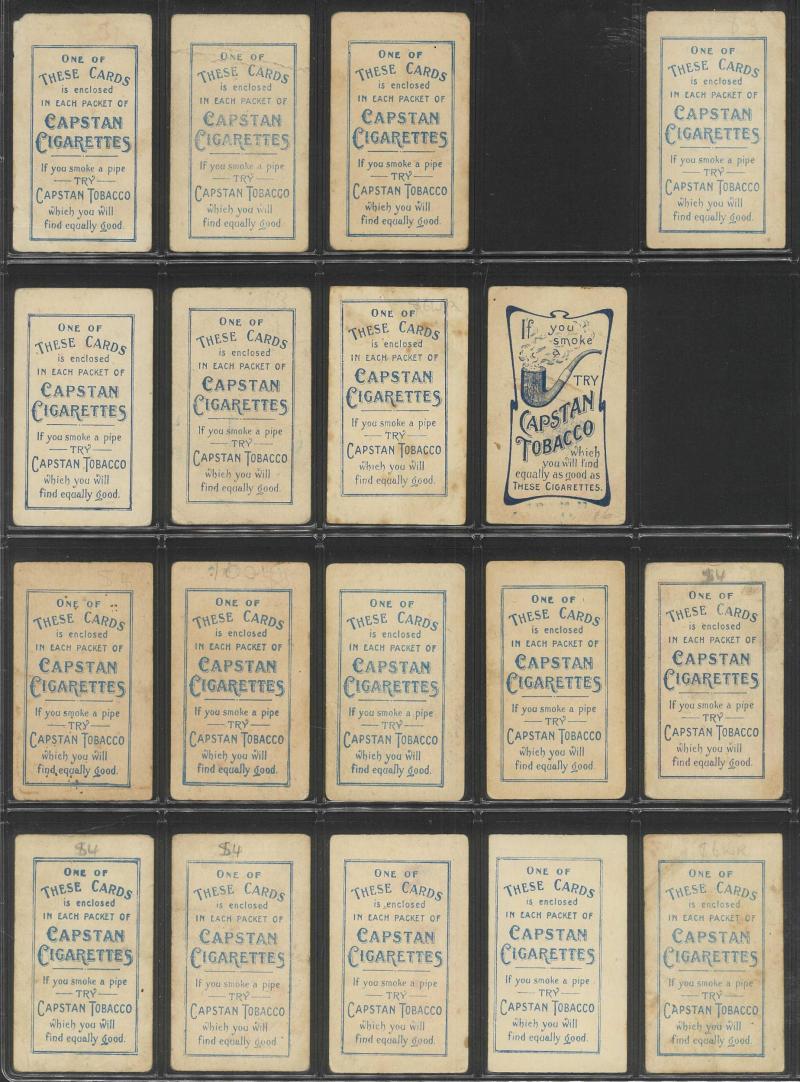 ONE OF
THESE CARDS
is enclosed
IN EACH PACKET OF
CAPSTAN
CIGARETTES
If you smoke a pipe
TRY
CAPSTAN TOBACCO
which you will
find equally good.
ONE OF
THESE CARDS
is enclosed
IN EACH PACKET OF
CAPSTAN
CIGARETTES
If you smoke a pipe
TRY
CAPSTAN TOBACCO
which you will
find equally good.
ONE OF
THESE CARDS
is enclosed
IN EACH PACKET OF
CAPSTAN
CIGARETTES
If you smoke a pipe
TRY
CAPSTAN TOBACCO
which you will
find equally good.
ONE OF
THESE CARDS
is enclosed
IN EACH PACKET OF
CAPSTAN
CIGARETTES
If you smoke a pipe
TRY
CAPSTAN TOBACCO
which you will
find equally good.
ONE OF
THESE CARDS
is enclosed
IN EACH PACKET OF
CAPSTAN
CIGARETTES
If you smoke a pipe
TRY
CAPSTAN TOBACCO
which you will
find equally good.
ONE OF
THESE CARDS
is enclosed
IN EACH PACKET OF
CAPSTAN
CIGARETTES
If you smoke a pipe
TRY
CAPSTAN TOBACCO
which you will
find equally good.
ONE OF
THESE CARDS
is enclosed
IN EACH PACKET OF
CAPSTAN
CIGARETTES
If you smoke a pipe
TRY
CAPSTAN TOBACCO
which you will
find equally good.
If you
smoke
a
TRY
CAPSTAN
TOBACCO
which
you will find
equally as good as
THESE CIGARETTES.
$4
ONE OF
THESE CARDS
is enclosed
IN EACH PACKET OF
CAPSTAN
CIGARETTES
If you smoke a pipe
TRY
CAPSTAN TOBACCO
which you will
find equally good.
ONE OF
THESE CARDS
is enclosed
IN EACH PACKET OF
CAPSTAN
CIGARETTES
If you smoke a pipe
TRY
CAPSTAN TOBACCO
which you will
find equally good.
ONE OF
THESE CARDS
is enclosed
IN EACH PACKET OF
CAPSTAN
CIGARETTES
If you smoke a pipe
TRY
CAPSTAN TOBACCO
which you will
find equally good.
ONE OF
THESE CARDS
is enclosed
IN EACH PACKET OF
CAPSTAN
CIGARETTES
If you smoke a pipe
TRY
CAPSTAN TOBACCO
which you will
find equally good.
$4
ONE OF
THESE CARDS
is enclosed
IN EACH PACKET OF
CAPSTAN
CIGARETTES
If you smoke a pipe
TRY
CAPSTAN TOBACCO
which you will
find equally good.
$4
ONE OF
THESE CARDS
is enclosed
IN EACH PACKET OF
CAPSTAN
CIGARETTES
If you smoke a pipe
TRY
CAPSTAN TOBACCO
which you will
find equally good.
$4
ONE OF
THESE CARDS
is enclosed
IN EACH PACKET OF
CAPSTAN
CIGARETTES
If you smoke a pipe
TRY
CAPSTAN TOBACCO
which you will
find equally good.
ONE OF
THESE CARDS
is enclosed
IN EACH PACKET OF
CAPSTAN
CIGARETTES
If you smoke a pipe
TRY
CAPSTAN TOBACCO
which you will
find equally good.
ONE OF
THESE CARDS
is enclosed
IN EACH PACKET OF
CAPSTAN
CIGARETTES
If you smoke a pipe
TRY
CAPSTAN TOBACCO
which you will
find equally good.
ONE OF
THESE CARDS
is enclosed
IN EACH PACKET OF
CAPSTAN
CIGARETTES
If you smoke a pipe
TRY
CAPSTAN TOBACCO
which you will
find equally good.